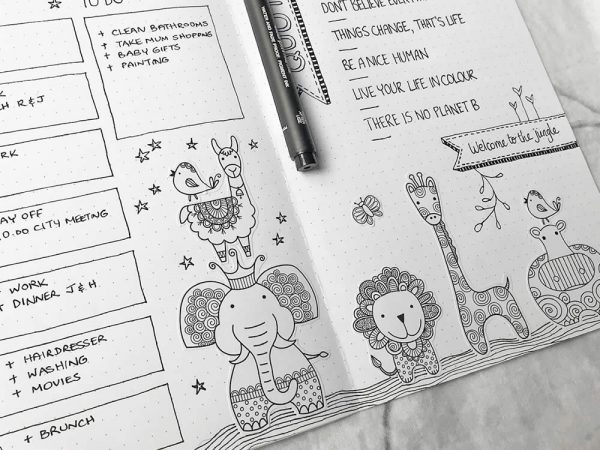 TO DO
+ CLEAN BATHROOMS
+ TAKE MUM SHOPPING
+ BABY GIFTS
+ PAINTING
R & J
WORK
DAY OFF
CITY MEETING
WORK
DINNER J & H
+ HAIRDRESSER
+ WASHING
+ MOVIES
+ BRUNCH
DON'T BELIEVE
THINGS CHANGE, THAT'S LIFE
BE A NICE HUMAN
LIVE YOUR LIFE IN COLOUR
THERE IS NO PLANET B
Welcome to the jungle